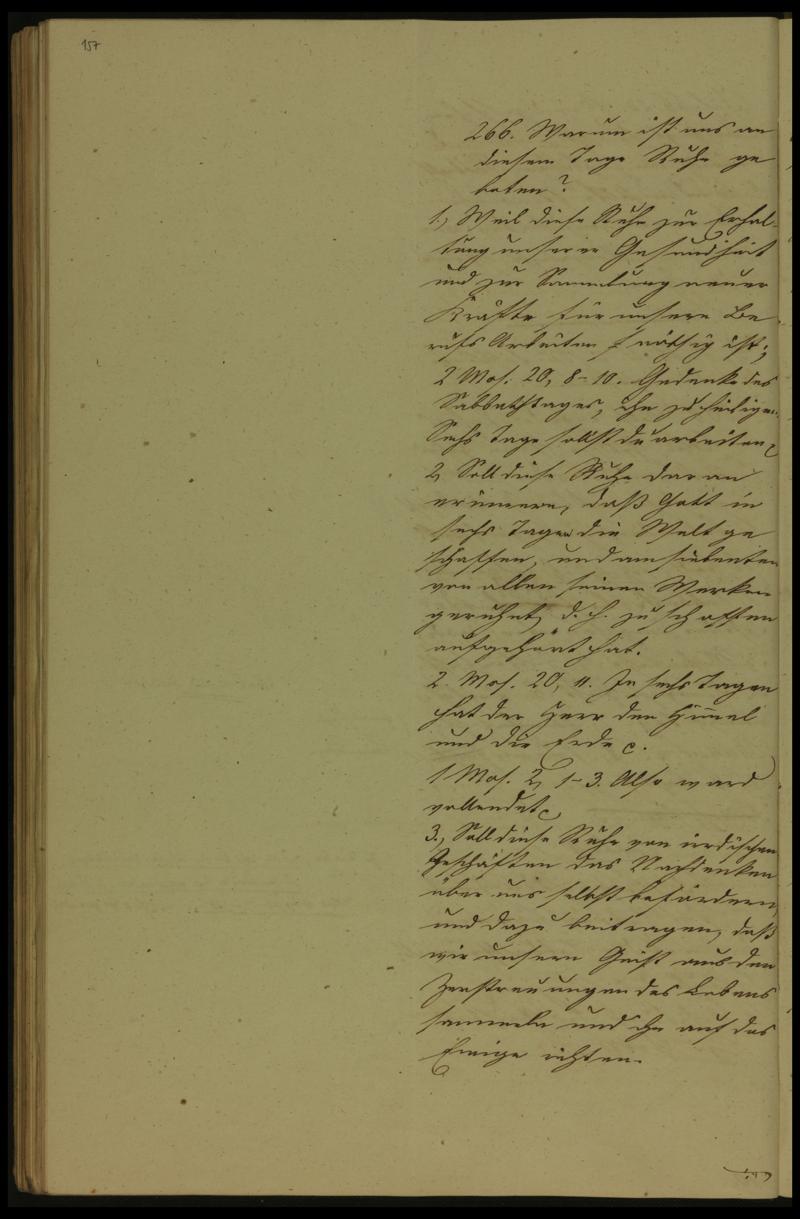 157
266. Warum ist uns an
diesem Tage Ruhe ge
boten?
1., Weil diese Ruhe zur Erhal-
tung unserer Gesundheit
und zur Sammlung neuer
Kräfte für unsere Be
rufs Arbeiten nöthig ist;
2 Mos. 20, 8-10. Gedenke des
Sabbathtages, ihn zu heiligen.
Sechs Tage sollst du arbeiten
2, Soll diese Ruhe daran
erinnern, daß Gott in
sechs Tagen die Welt ge
schaffen, und am siebenten
von allen seinen Werken
geruhet, d. h. zu schaffen
aufgehört hat.
2. Mos. 20, 11. In sechs Tagen
hat der Herr den Himel
und die Erde c.
1 Mos. 2, 1-3. Also ward
vollendet
3., Soll diese Ruhe von irdischen
Geschäften das Nachdenken
über uns selbst befördern,
und dazu beitragen, daß
wir unsern Geist aus den
Zerstreuungen des Lebens
sammeln und ihn auf das
Ewige richten.